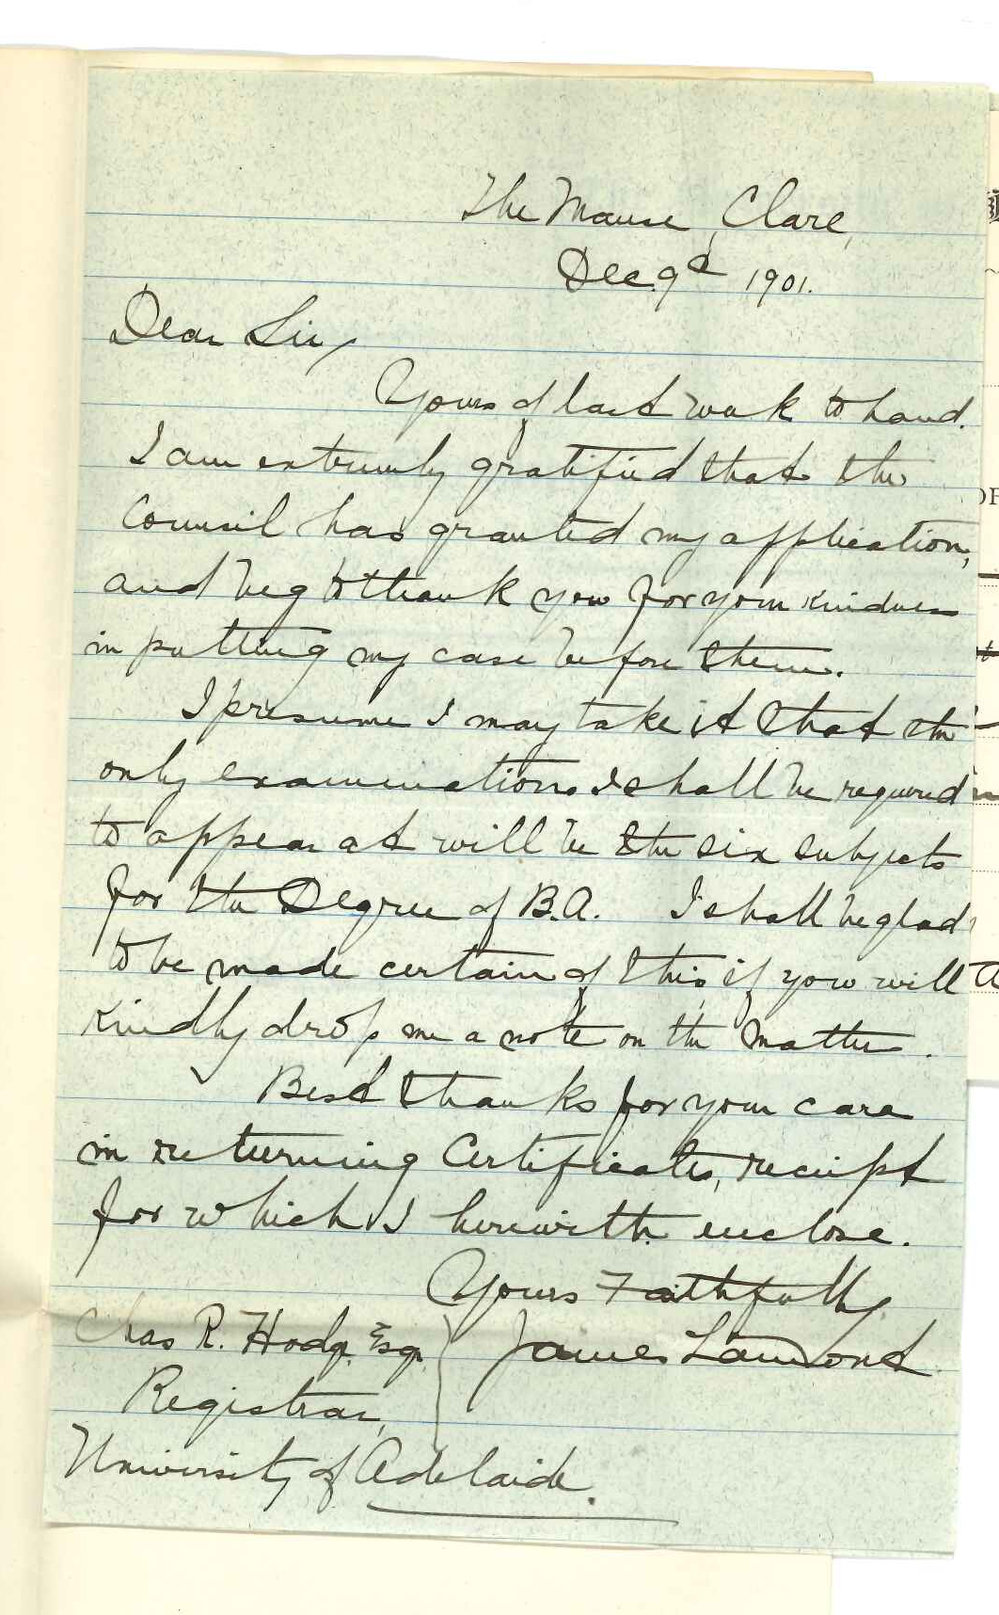 The Manse, Clare,
Dec. 9th 1901.
Dear Sir,
Yours of last week to hand.
I am extremely gratified that the
Council has granted my application,
and beg to thank you for your kindness
in putting my case before them.
I presume I may take it that the
only examinations I shall be required
to appear at will be the six subjects
for the Degree of B.A. I shall be glad
to be made certain of this, if you will
kindly drop me a note on the matter.
Best thanks for your care
in returning Certificates, receipt
for which I herewith enclose.
Yours Faithfully,
James Lamont
Chas R. Hodge Esqr
Registrar,
University of Adelaide.